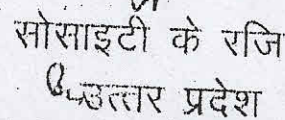 सोसाइटी के रजि
उत्तर प्रदेश